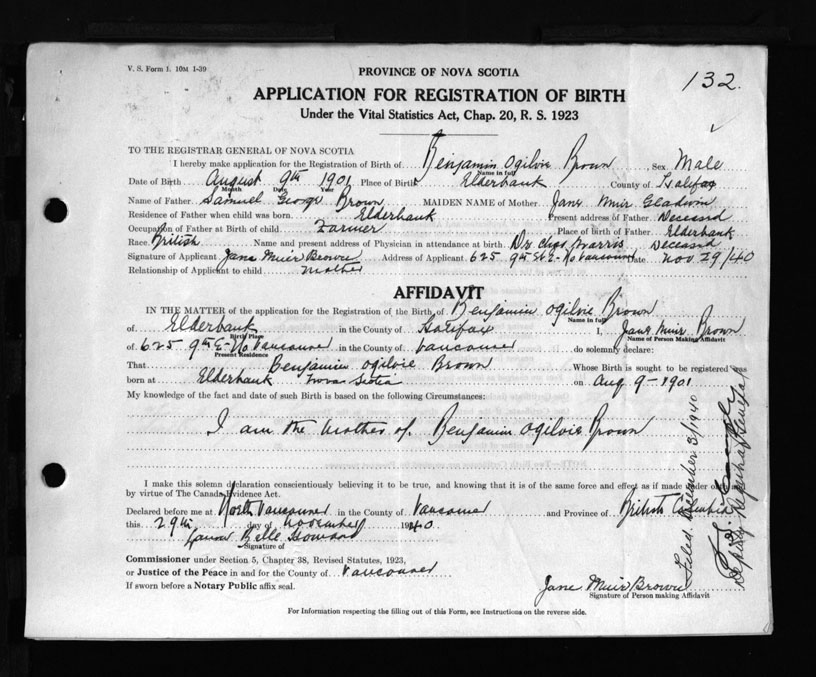 V. S. Form 1. 10M 1-39
132.
PROVINCE OF NOVA SCOTIA
APPLICATION FOR REGISTRATION OF BIRTH
Under the Vital Statistics Act, Chap. 20, R. S. 1923
TO THE REGISTRAR GENERAL OF NOVA SCOTIA
I hereby make application for the Registration of Birth of Benjamin Ogilvie Brown Sex Male
Name in full
Date of Birth August 9th 1901 Place of Birth Elderbank County of Halifax
Month Date Year
Name of Father Samuel George Brown MAIDEN NAME of Mother Jane Muir Gladwin
Residence of Father when child was born Elderbank Present address of Father Deceased
Occupation of Father at Birth of child Farmer Place of Birth of Father Elderbank
Race British Name and present address of Physician in attendance at birth Dr Chas Deceased
Signature of Applicant Jane Muir Brown Address of Applicant 625 9th St E - No Vancouver Date Nov 29/40
Relationship of Applicant to child mother
AFFIDAVIT
IN THE MATTER of the application for the Registration of the Birth of Benjamin Ogilvie Brown
Name in full
of Elderbank in the County of Halifax I, Jane Muir Brown
Birth Place Name of Person Making Affidavit
of 625 9th E - No Vancouver in the County of Vancouver do solemnly declare:
Present Residence
That Benjamin Ogilvie Brown Whose Birth is sought to be registered was
born at Elderbank Nova Scotia on Aug 9 - 1901
My knowledge of the fact and date of such Birth is based on the following Circumstances:
I am the mother of Benjamin Ogilvie Brown
I make this solemn declaration conscientiously believing it to be true, and knowing that it is of the same force and effect as if made under oath and
by virtue of The Canada Evidence Act.
Declared before me at North Vancouver in the County of Vancouver and Province of British Columbia
this 29th day of November 1940
Belle Howard
Signature of
Commissioner under Section 5, Chapter 38, Revised Statutes, 1923,
or Justice of the Peace in and for the County of Vancouver
If sworn before a Notary Public affix seal.
Jane Muir Brown
Signature of Person making Affidavit
For Information respecting the filling out of this Form, see Instructions on the reverse side.
Filed December 3/1940
Deputy Registrar General